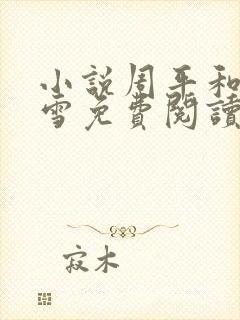 小說周平和
雪免費閱讀
寂木